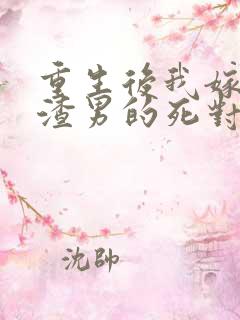 重生後我嫁
渣男的死對
沈帥